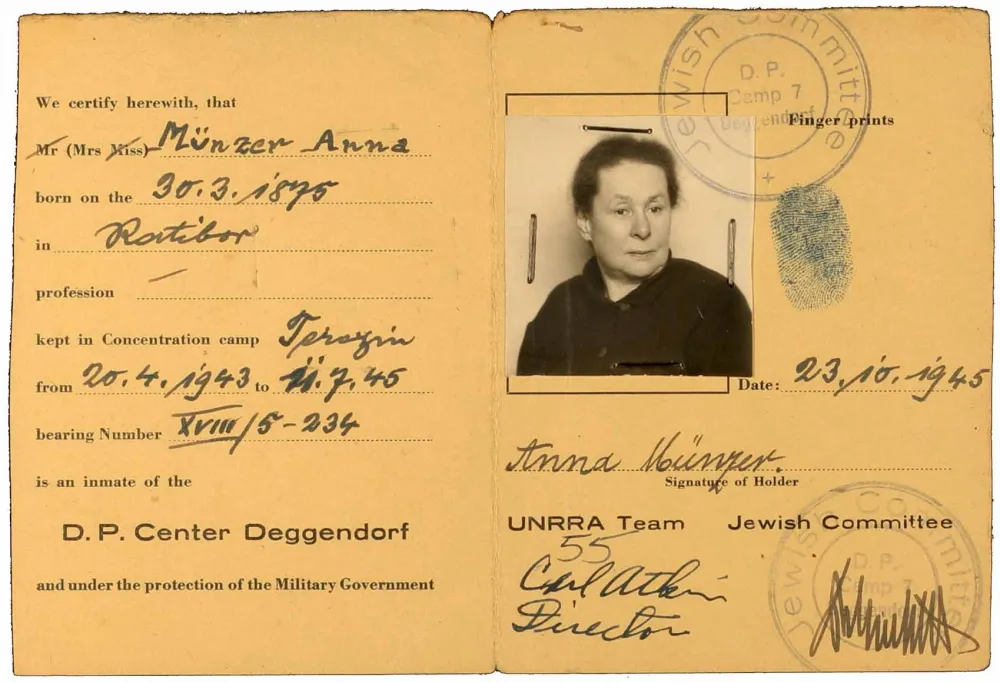 We certify herewith, that
Mr (Mrs Miss) Münzer Anna
born on the 30.3.1875
in Ratibor
profession —
kept in Concentration camp Terezin
from 20.4.1943 to 11.7.45
bearing Number XVIII/5-234
is an inmate of the
D. P. Center Deggendorf
and under the protection of the Military Government
Jewish Committee
D. P.
Camp 7
Deggendorf
Finger prints
Date: 23.10.1945
Anna Münzer.
Signature of Holder
UNRRA Team Jewish Committee
55
Carl Atkin
Director
Jewish Committee
D. P.
Camp 7
Deggendorf